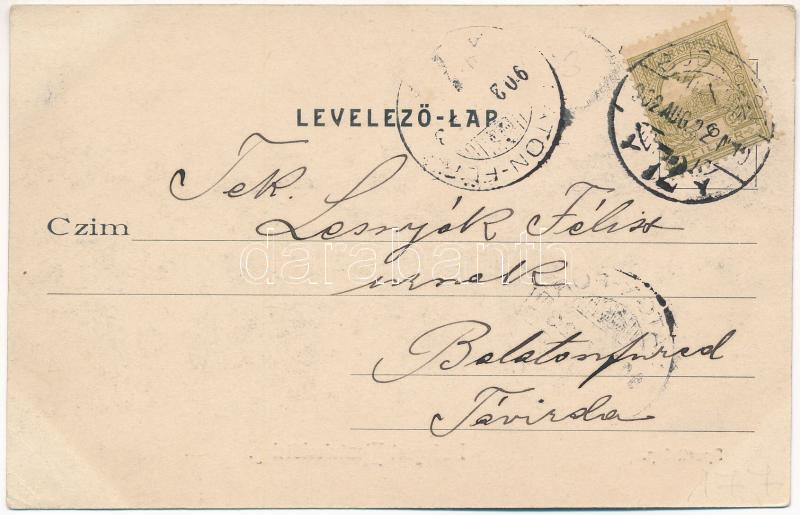 LEVELEZŐ-LAP
Tek.
Czim Lesnyák Félix
urnak
darabanth
Balatonfüred
Távirda